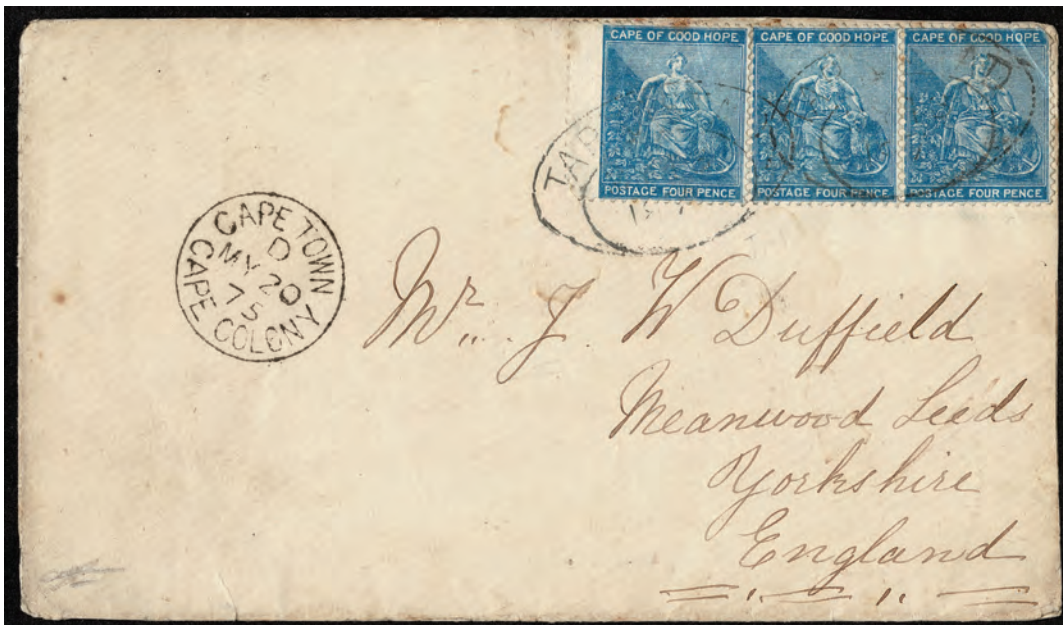 CAPE OF GOOD HOPE CAPE OF GOOD HOPE CAPE OF GOOD HOPE
POSTAGE FOUR PENCE POSTAGE FOUR PENCE POSTAGE FOUR PENCE
CAPE TOWN
D
MY 20
75
CAPE COLONY
Mr. J. W Duffield
Meanwood Leeds
Yorkshire
England